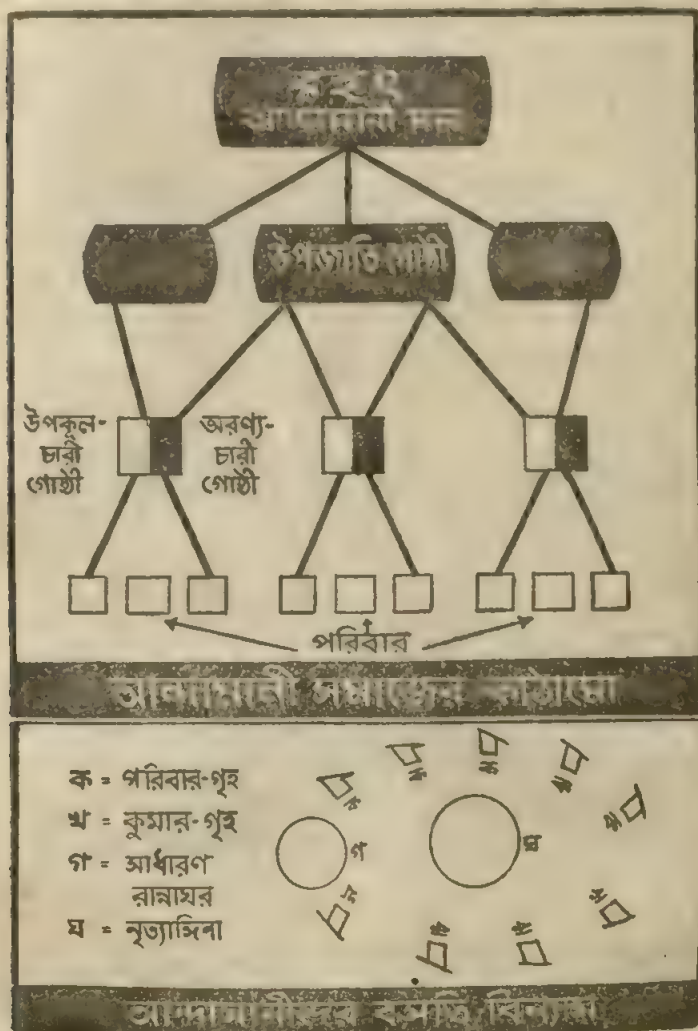 বৃহৎ
আন্দামানী দল
উপজাতি গোষ্ঠী
উপকূল-
চারী
গোষ্ঠী
অরণ্য-
চারী
গোষ্ঠী
পরিবার
আন্দামানী সমাজের কাঠামো
ক = পরিবার-গৃহ
খ = কুমার-গৃহ
গ = সাধারণ
রান্নাঘর
ঘ = নৃত্যাঙ্গিনা
গ
ঘ
আন্দামানীদের বসতি বিন্যাস